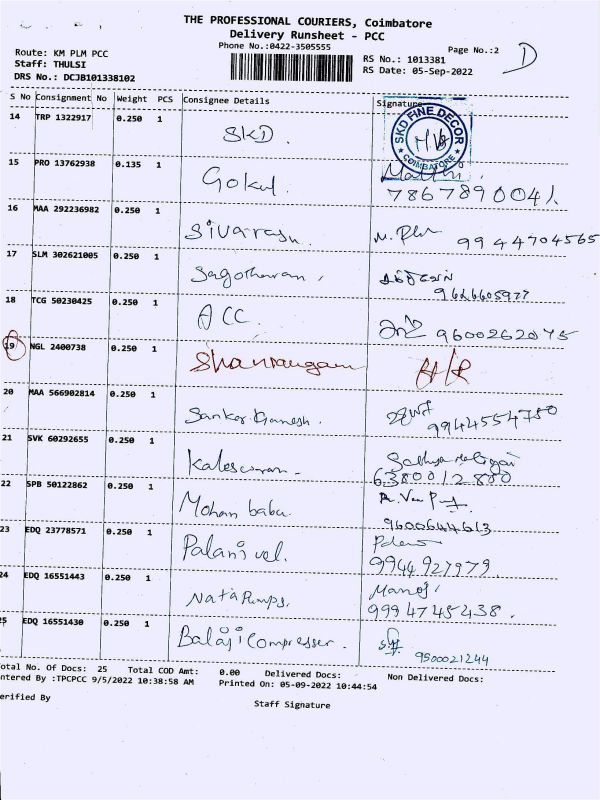 THE PROFESSIONAL COURIERS, Coimbatore
Delivery Runsheet - PCC
Phone No.:0422-3505555
Page No.:2 D
Route: KM PLM PCC
Staff: THULSI
DRS No.: DCJB101338102
RS No.: 1013381
RS Date: 05-Sep-2022
S No Consignment No Weight PCS Consignee Details Signature
14 TRP 1322917 0.250 1 SKD.
SKD FINE DECOR
* COIMBATORE *
15 PRO 13762938 0.135 1 Gokul.
7867890041
16 MAA 292236982 0.250 1 Sivarasu.
9944704565
17 SLM 302621005 0.250 1
9626605977
18 TCG 50230425 0.250 1 ACC.
9600262075
19 NGL 2400738 0.250 1 Shanmugam
20 MAA 566902814 0.250 1 Sankar Ganesh.
9944554750
21 SVK 60292655 0.250 1 Kaleswaran-
6380012880
22 SPB 50122862 0.250 1 Mohan babu
9600644613
23 EDQ 23778571 0.250 1 Palani vel.
9944927979.
24 EDQ 16551443 0.250 1 Nata Pumps.
Manoj
9994745238.
25 EDQ 16551430 0.250 1 Balaji Compresser.
9500021244
Total No. Of Docs: 25 Total COD Amt: 0.00 Delivered Docs: Non Delivered Docs:
ntered By :TPCPCC 9/5/2022 10:38:58 AM Printed On: 05-09-2022 10:44:54
erified By
Staff Signature